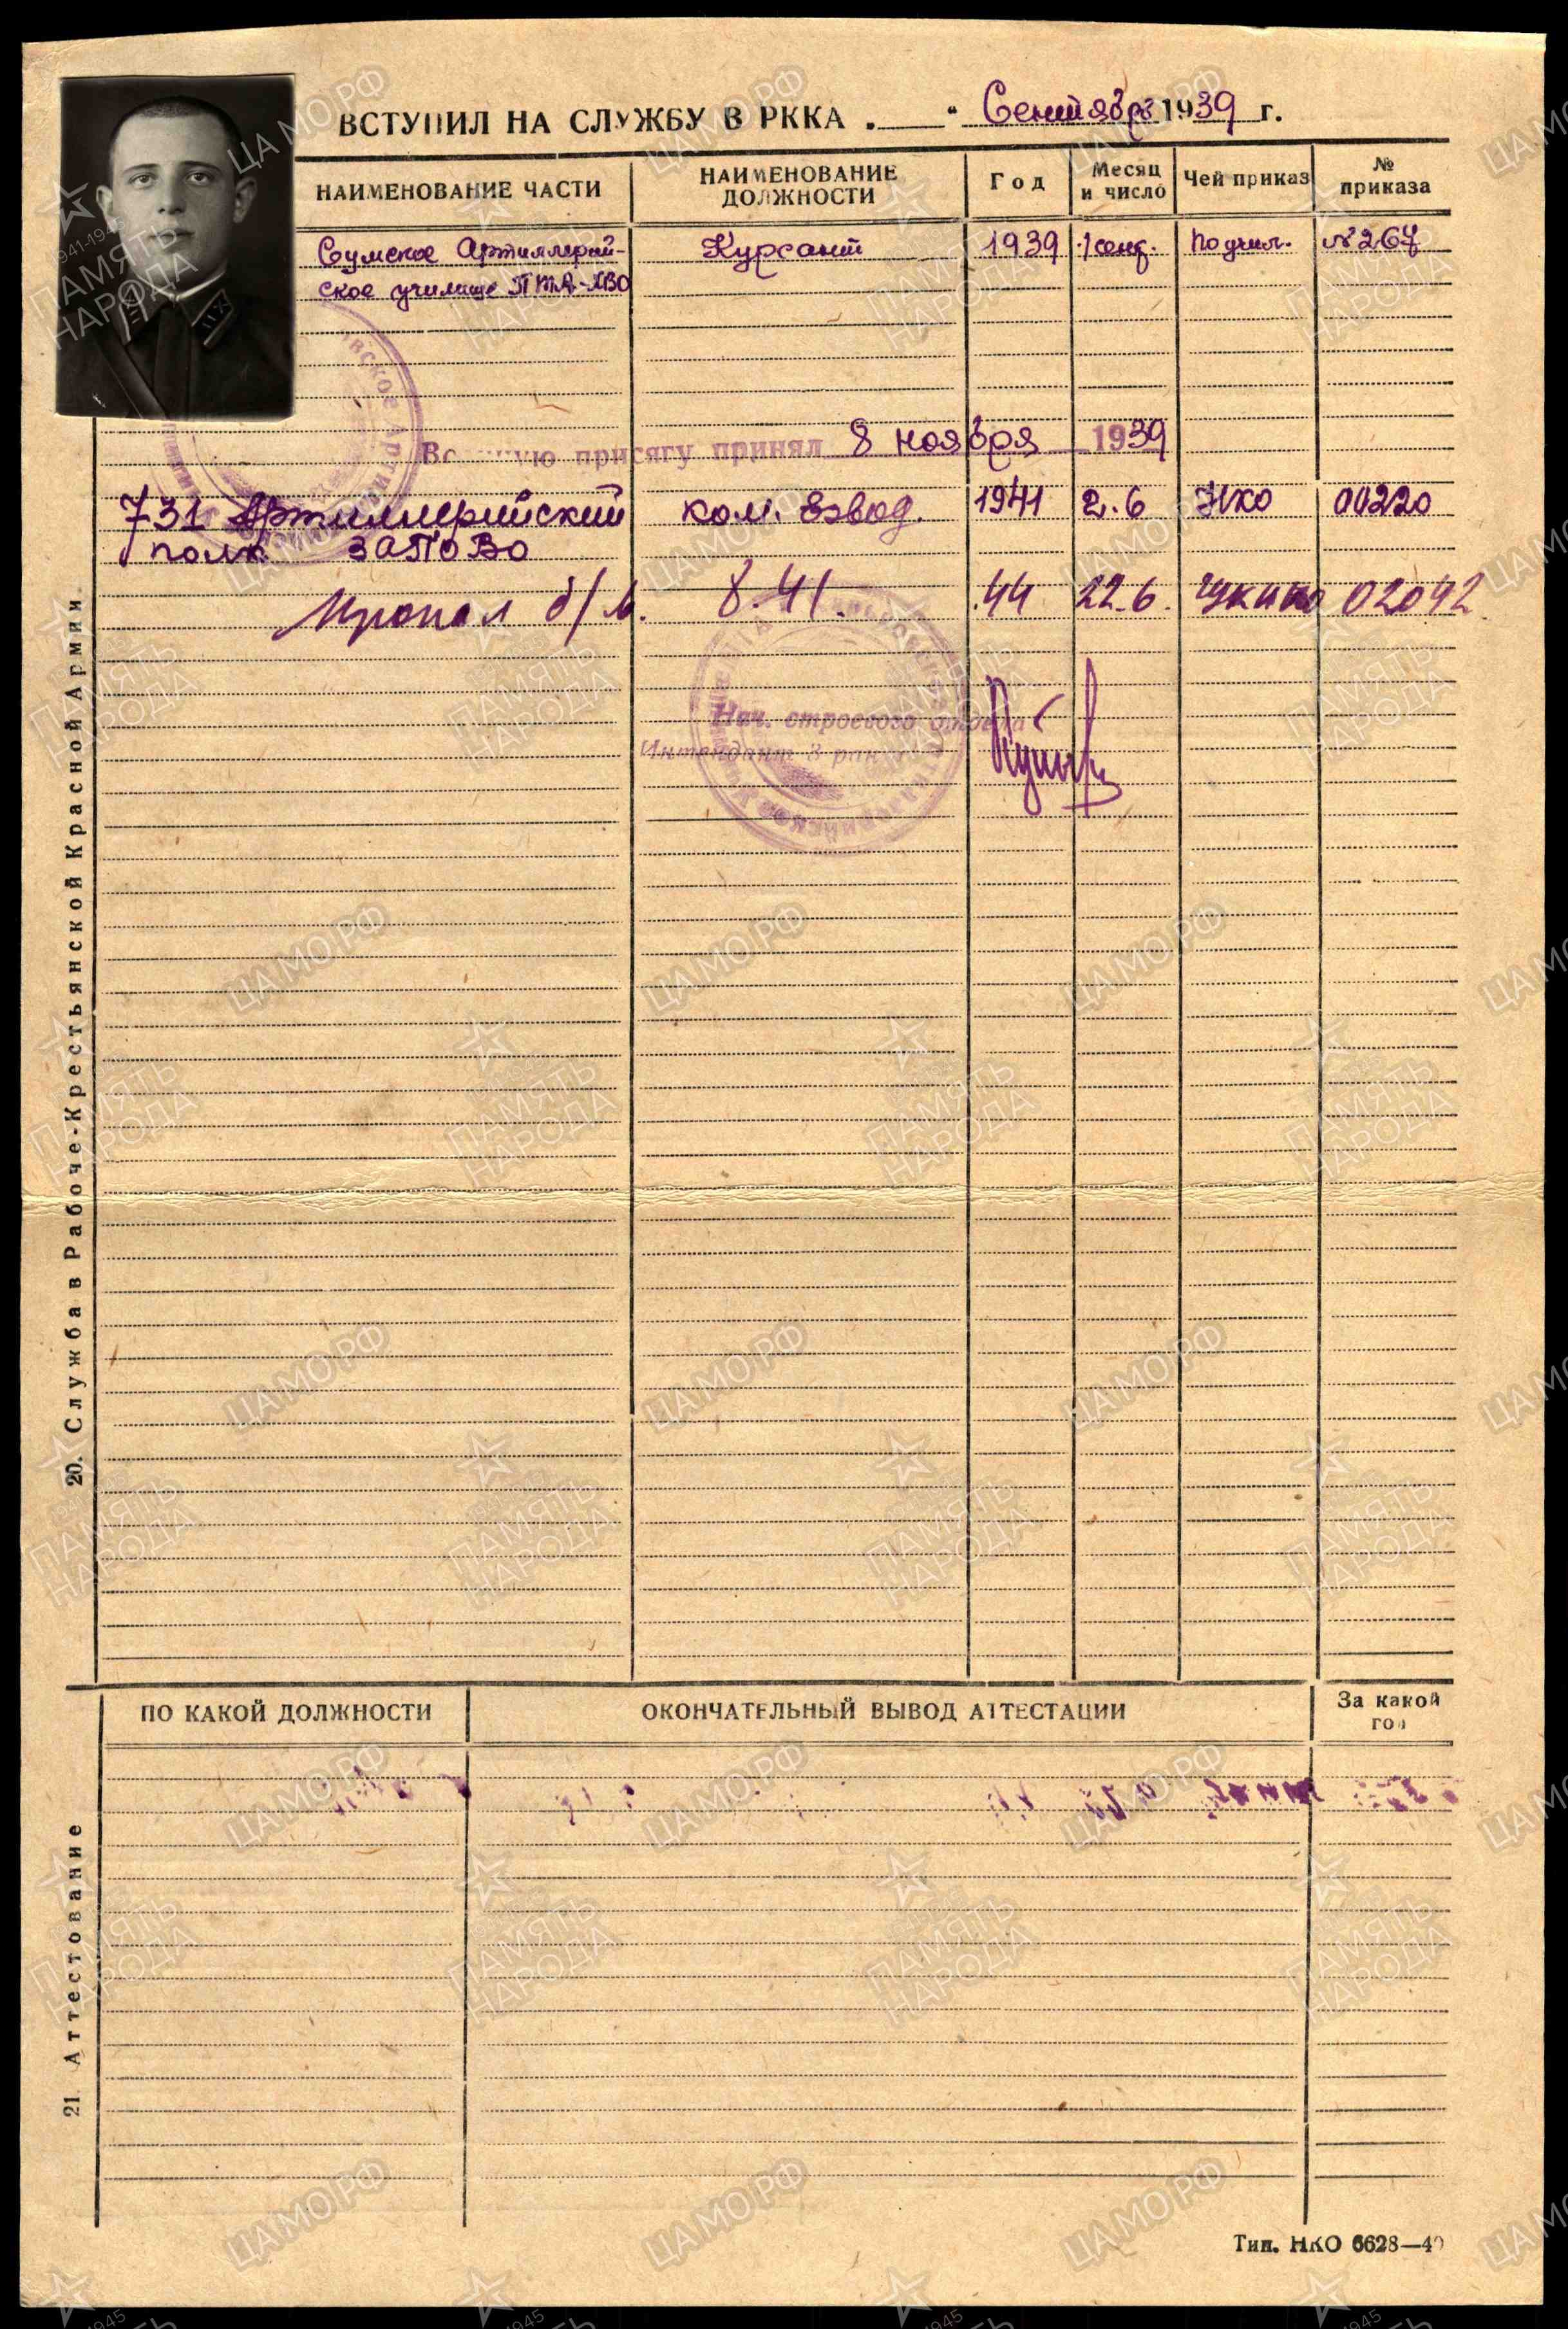 ВСТУПИЛ НА СЛУЖБУ В РККА "___" Сентября 1939 г.
НАИМЕНОВАНИЕ ЧАСТИ НАИМЕНОВАНИЕ ДОЛЖНОСТИ Год Месяц и число Чей приказ № приказа
Сумское Артиллерий- Курсант 1939 1 сент. По учил. №267
ское училище
Военную присягу принял 8 ноября 1939
731 Артиллерийский ком. взвод. 1941 2.6 НКО 00220
полк ЗапОВО
Пропал б/в. 8.41. 44 22.6. ГУК НКО 02042
Нач. строевого отдела
Интендант 3 ранга
20. Служба в Рабоче-Крестьянской Красной Армии
ПО КАКОЙ ДОЛЖНОСТИ ОКОНЧАТЕЛЬНЫЙ ВЫВОД АТТЕСТАЦИИ За какой год
21. Аттестование
Тип. НКО 6628—40
ЦАМО РФ
ПАМЯТЬ НАРОДА
1941-1945